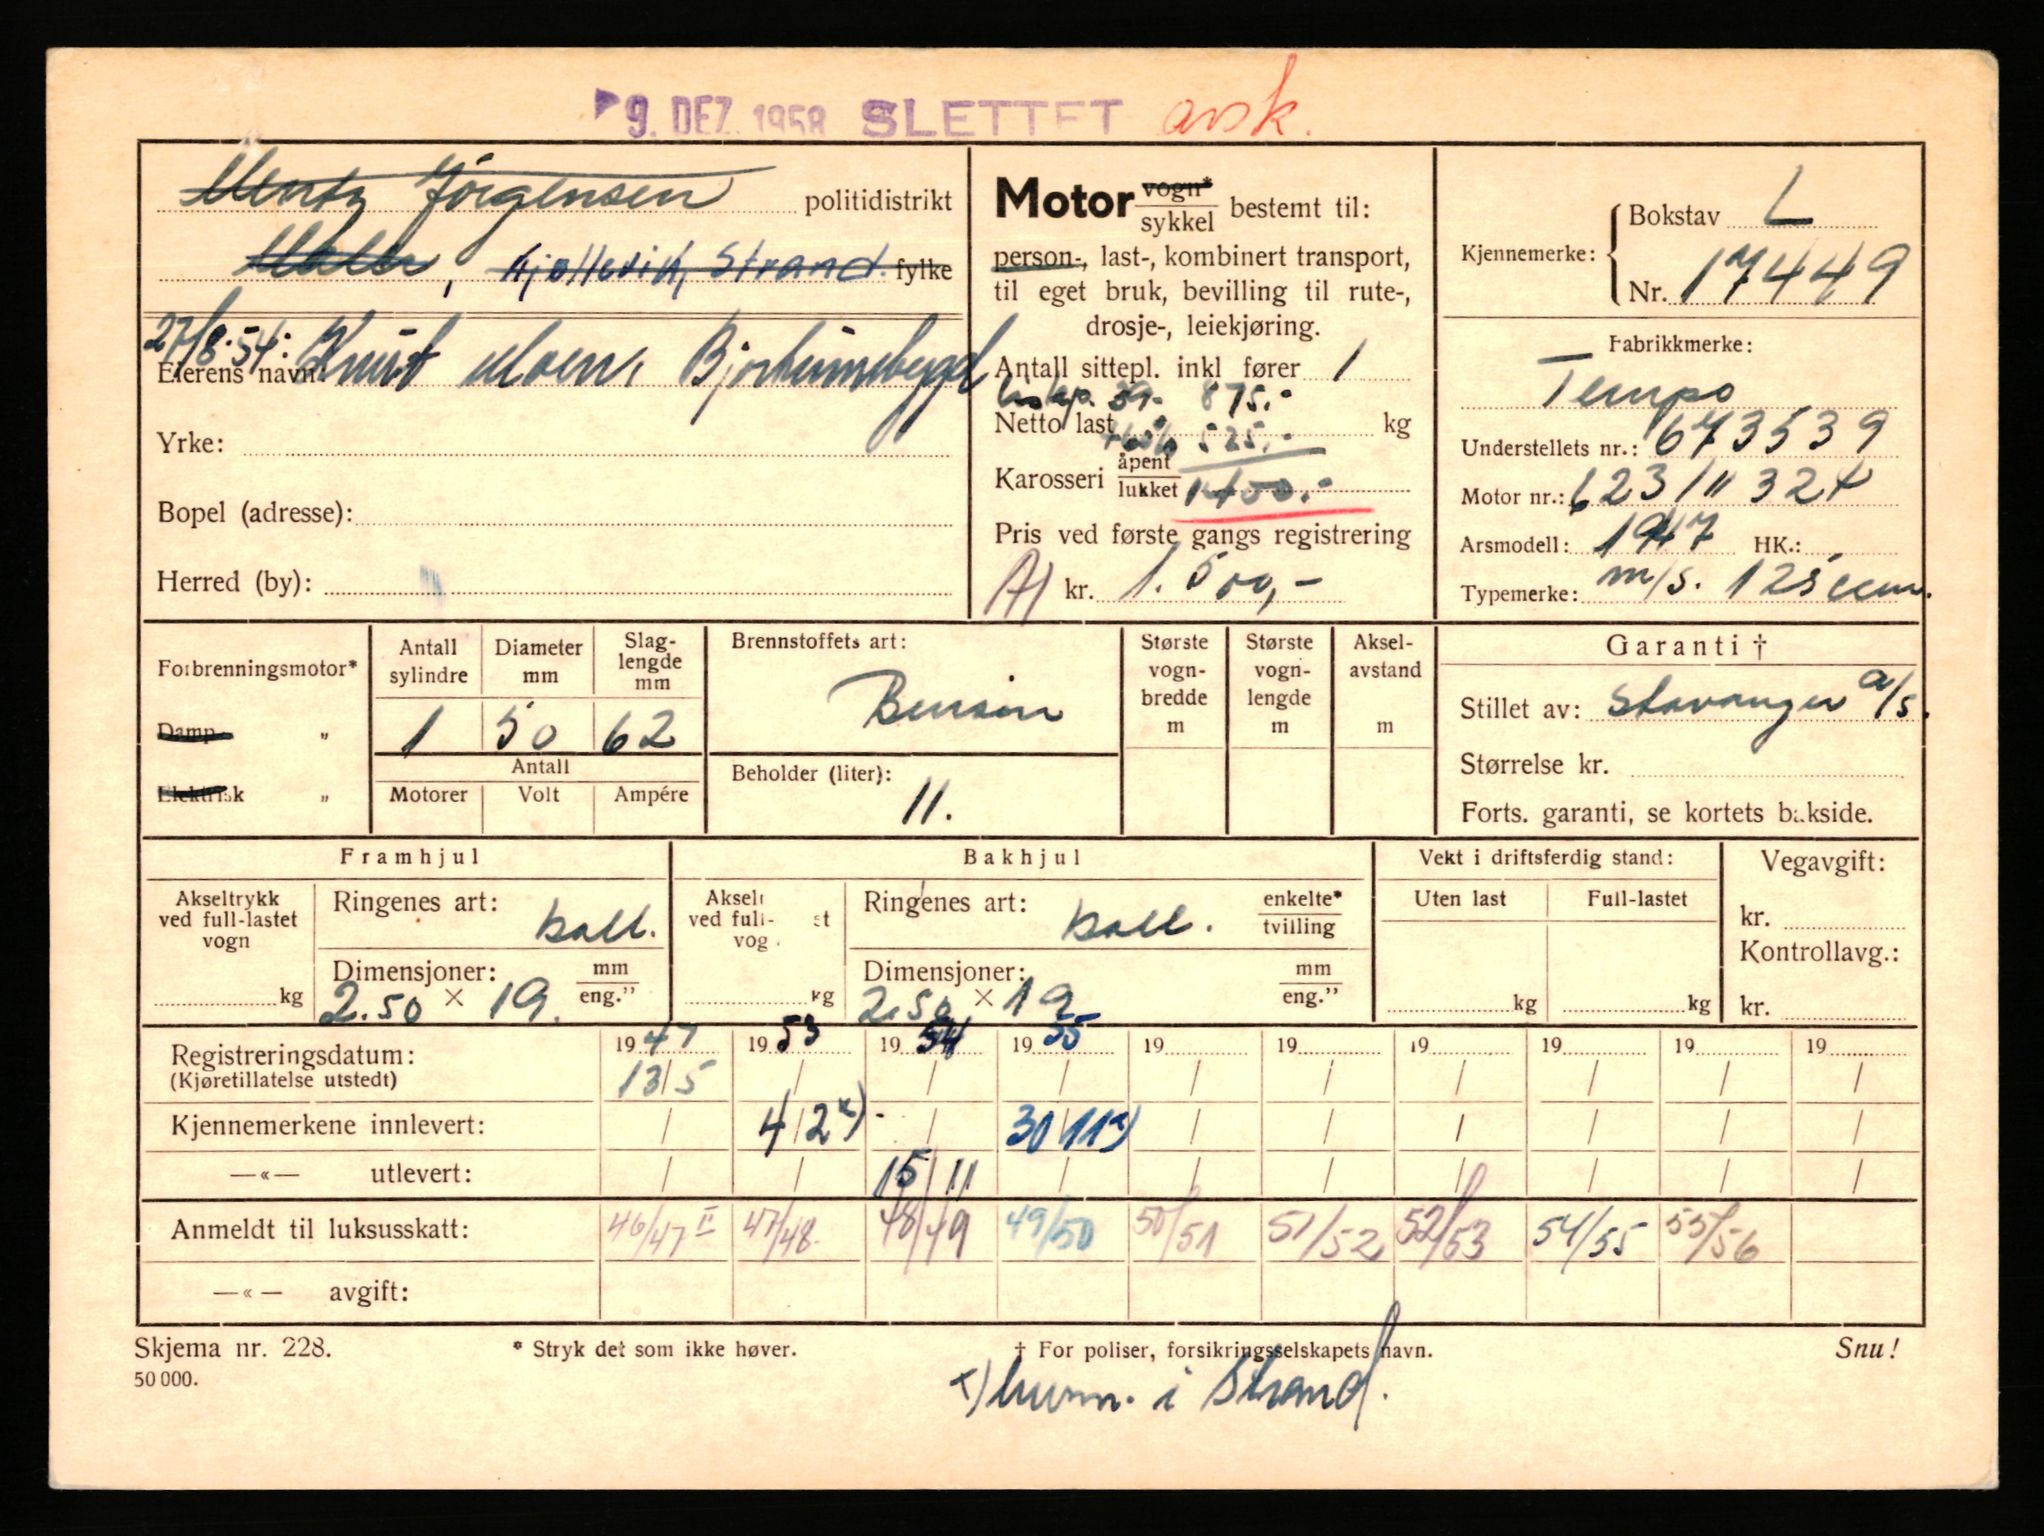 9. DEZ. 1958 SLETTET avsk.
Mentz Jørgensen politidistrikt
Kjøllevik, Strand. fylke
27/8-54: Knut Moen, Bjorheimsbygd
Eierens navn:
Yrke:
Bopel (adresse):
Herred (by):
Motor vogn* / sykkel bestemt til:
person-, last-, kombinert transport,
til eget bruk, bevilling til rute-,
drosje-, leiekjøring.
Antall sittepl. inkl fører 1
39.- 875.-
Netto last kg
+60% 525.-
Karosseri åpent / lukket 1400.-
Pris ved første gangs registrering
A) kr. 1.500,-
Kjennemerke: Bokstav L
Nr. 17449
Fabrikkmerke:
Tempo
Understellets nr.: 673539
Motor nr.: 623/11324
Arsmodell: 1947 HK.:
Typemerke: m/s. 125 ccm.
Forbrenningsmotor*
Damp- „
Elektrisk „
Antall sylindre
1
Diameter mm
50
Slag-lengde mm
62
Antall
Motorer Volt Ampére
Brennstoffets art:
Bensin
Beholder (liter):
11.
Største vogn-bredde m
Største vogn-lengde m
Aksel-avstand m
Garanti †
Stillet av: Stavanger a/s.
Størrelse kr.
Forts. garanti, se kortets bakside.
Framhjul
Akseltrykk
ved full-lastet
vogn
kg
Ringenes art: ball.
Dimensjoner: mm / eng.”
2.50 × 19.
Bakhjul
Akselt
ved full- st
vog
kg
Ringenes art: ball. enkelte* / tvilling
Dimensjoner: mm / eng.”
2.50 × 19
Vekt i driftsferdig stand:
Uten last Full-lastet
kg kg
Vegavgift:
kr.
Kontrollavg.:
kr.
Registreringsdatum: 1947 1953 1954 1955 19 19 19 19 19 19
(Kjøretillatelse utstedt) 13/5 / / / / / / / / /
Kjennemerkene innlevert: / 4/2 x) / 30/11 x) / / / / / /
—«— utlevert: / / 15/11 / / / / / / /
Anmeldt til luksusskatt: 46/47 II 47/48 48/49 49/50 50/51 51/52 52/53 54/55 55/56
—«— avgift:
Skjema nr. 228. * Stryk det som ikke høver. † For poliser, forsikringsselskapets navn. Snu!
50 000.
x) hvnm. i Strand.